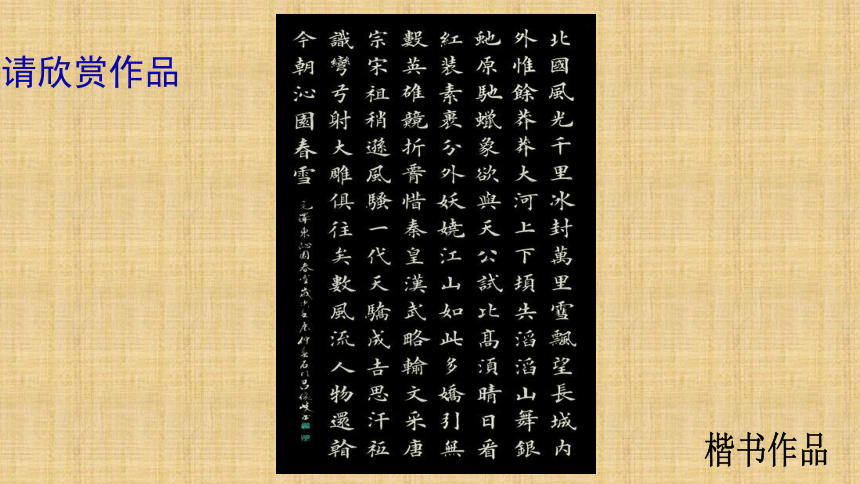 请欣赏作品
北國風光千里冰封萬里雪飄望長城内
外惟餘莽莽大河上下頃失滔滔山舞銀
虵原馳蠟象欲與天公試比髙須晴日看
紅装素裹分外妖嬈江山如此多嬌引無
數英雄競折腰惜秦皇漢武略輸文采唐
宗宋祖稍遜風騷一代天驕成吉思汗祗
識彎弓射大雕俱往矣數風流人物還看
今朝沁園春雪
毛澤東沁園春雪歲
楷书作品